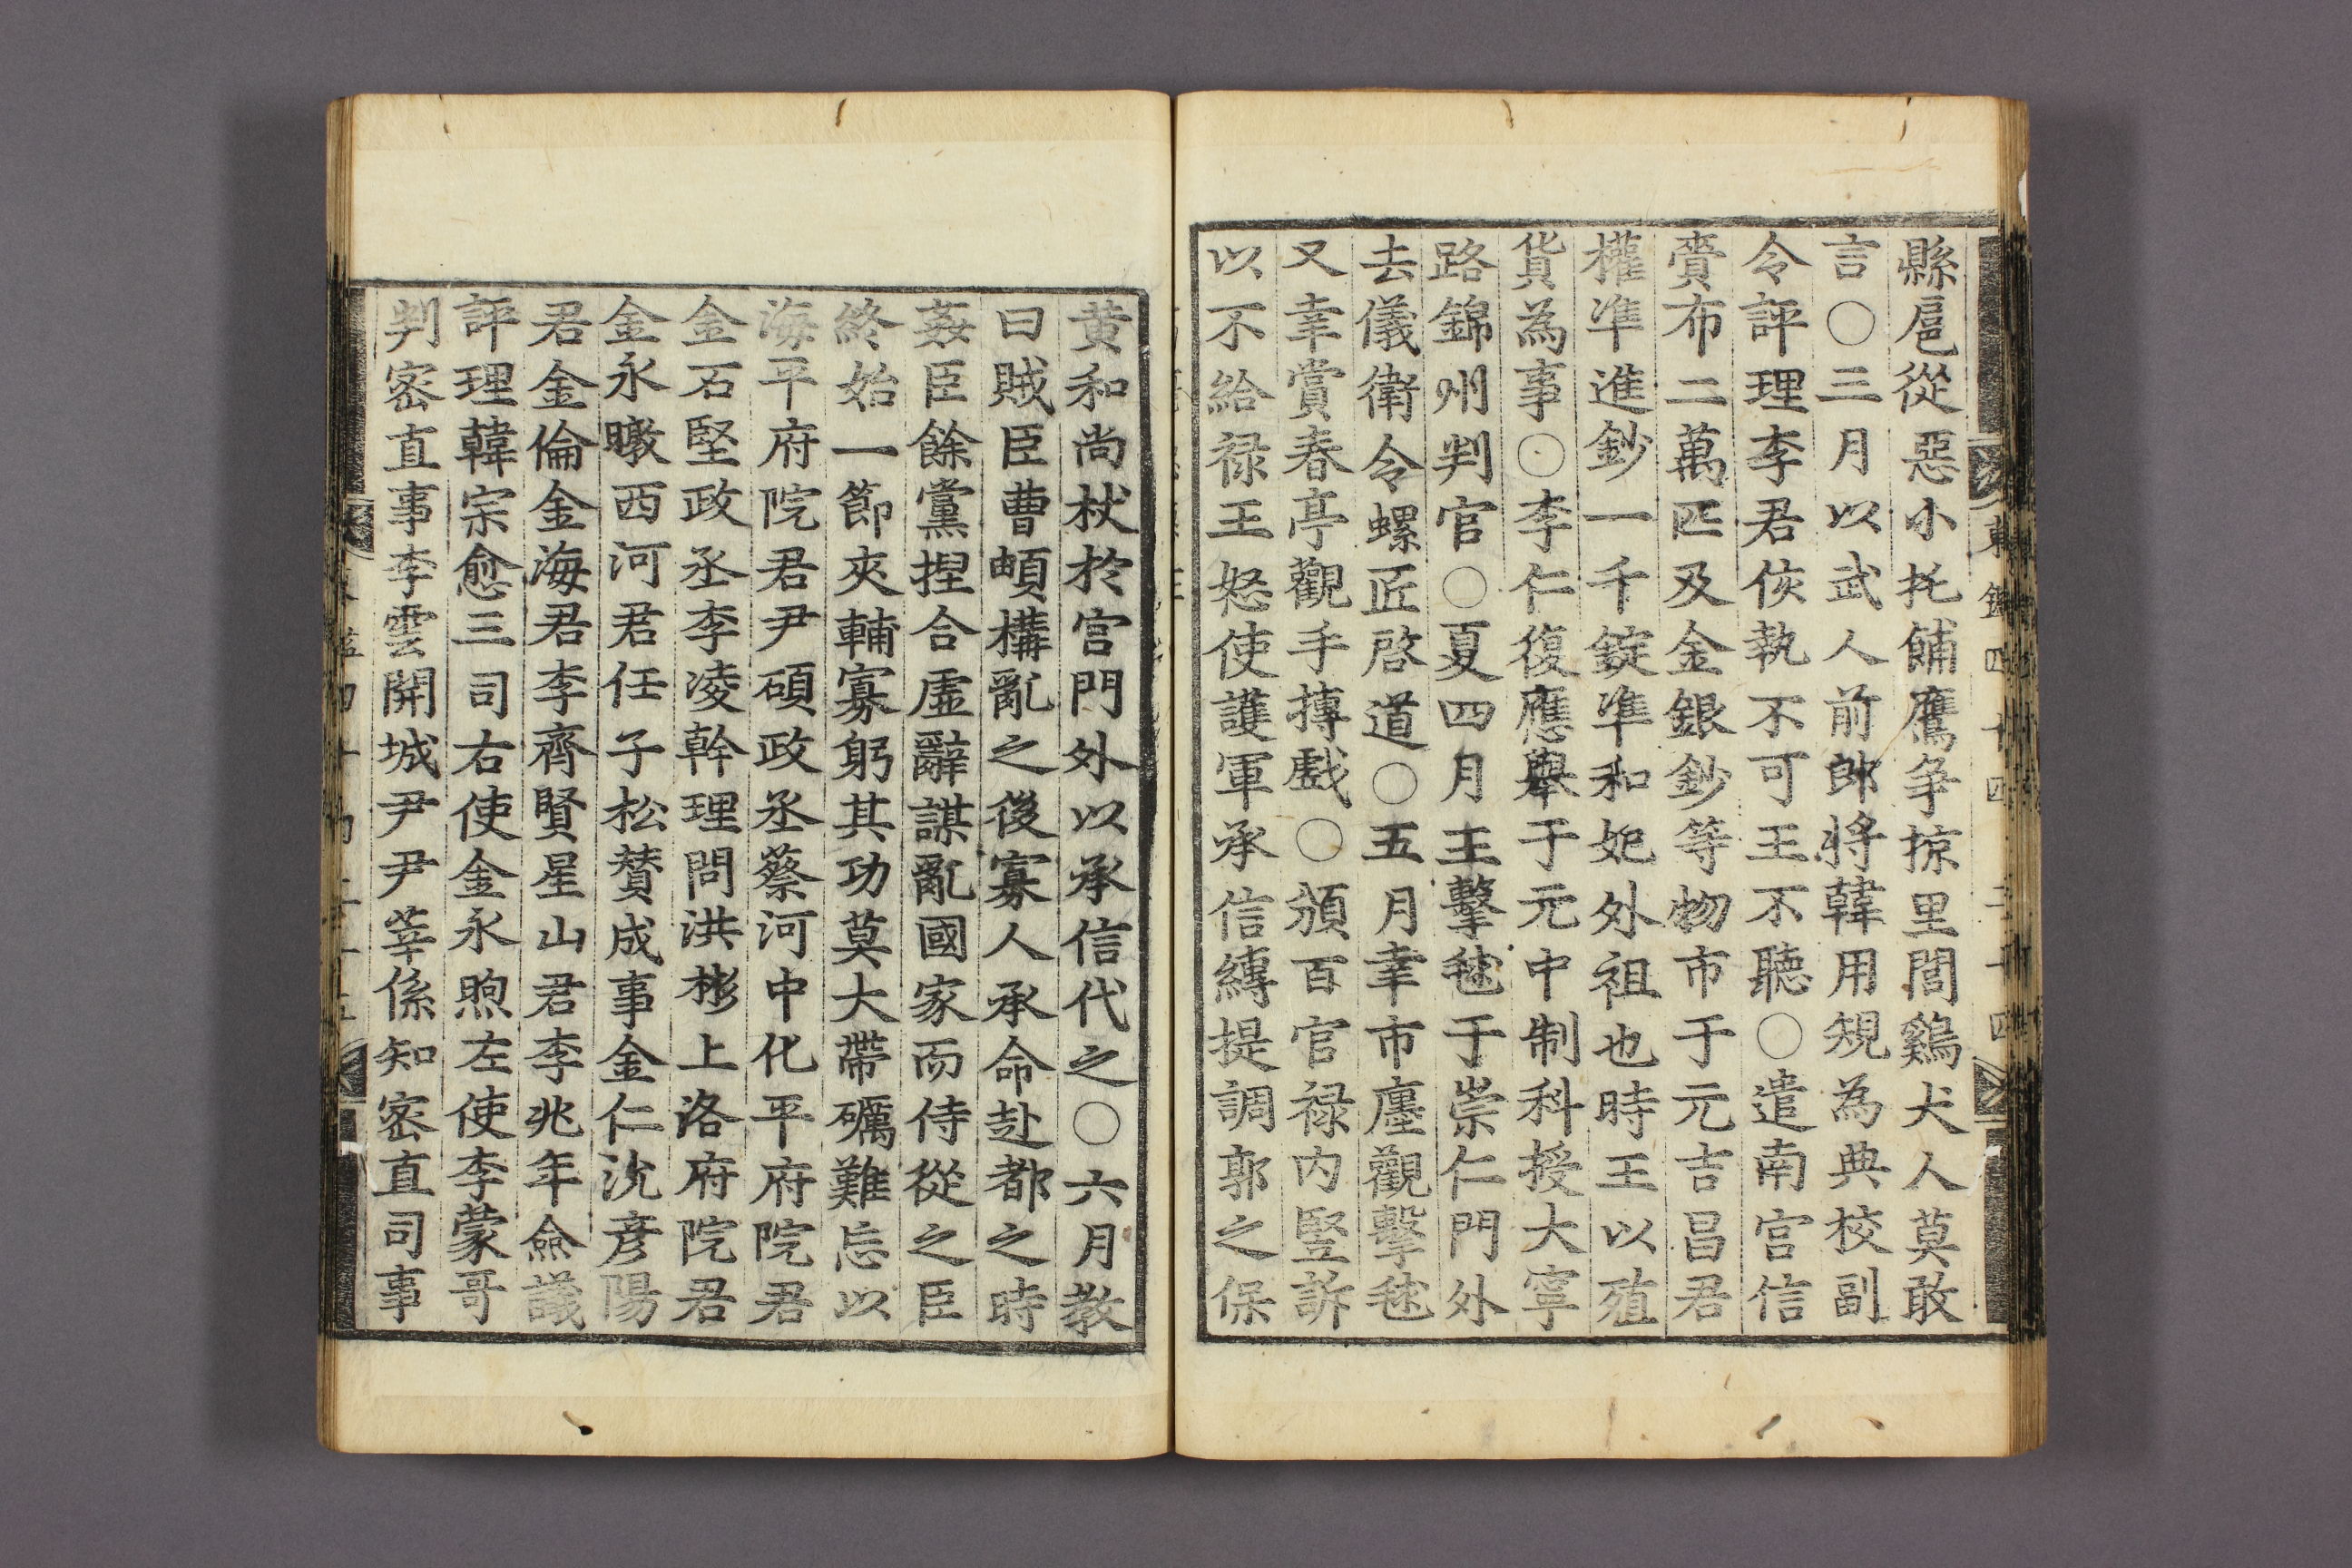 縣扈從惡小托餔鷹爭掠里閭鷄犬人莫敢
言○三月以武人前郎將韓用規為典校副
令評理李君侅執不可王不聽○遣南宮信
賫布二萬匹及金銀鈔等物市于元吉昌君
權準進鈔一千錠準和妃外祖也時王以殖
貨為事○李仁復應舉于元中制科授大寧
路錦州判官○夏四月王擊毬于崇仁門外
去儀衛令螺匠啓道○五月幸市廛觀擊毬
又幸賞春亭觀手搏戲○頒百官祿內竪訴
以不給祿王怒使護軍承信縛提調郭之保
黃和尚杖於宮門外以承信代之○六月教
曰賊臣曹頔構亂之後寡人承命赴都之時
姦臣餘黨捏合虛辭謀亂國家而侍從之臣
終始一節夾輔寡躬其功莫大帶礪難忘以
海平府院君尹碩政丞蔡河中化平府院君
金石堅政丞李凌幹理問洪彬上洛府院君
金永暾西河君任子松贊成事金仁沇彥陽
君金倫金海君李齊賢星山君李兆年僉議
評理韓宗愈三司右使金永煦左使李蒙哥
判密直事李雲開城尹尹莘係知密直司事
東鑑四十四 二十四